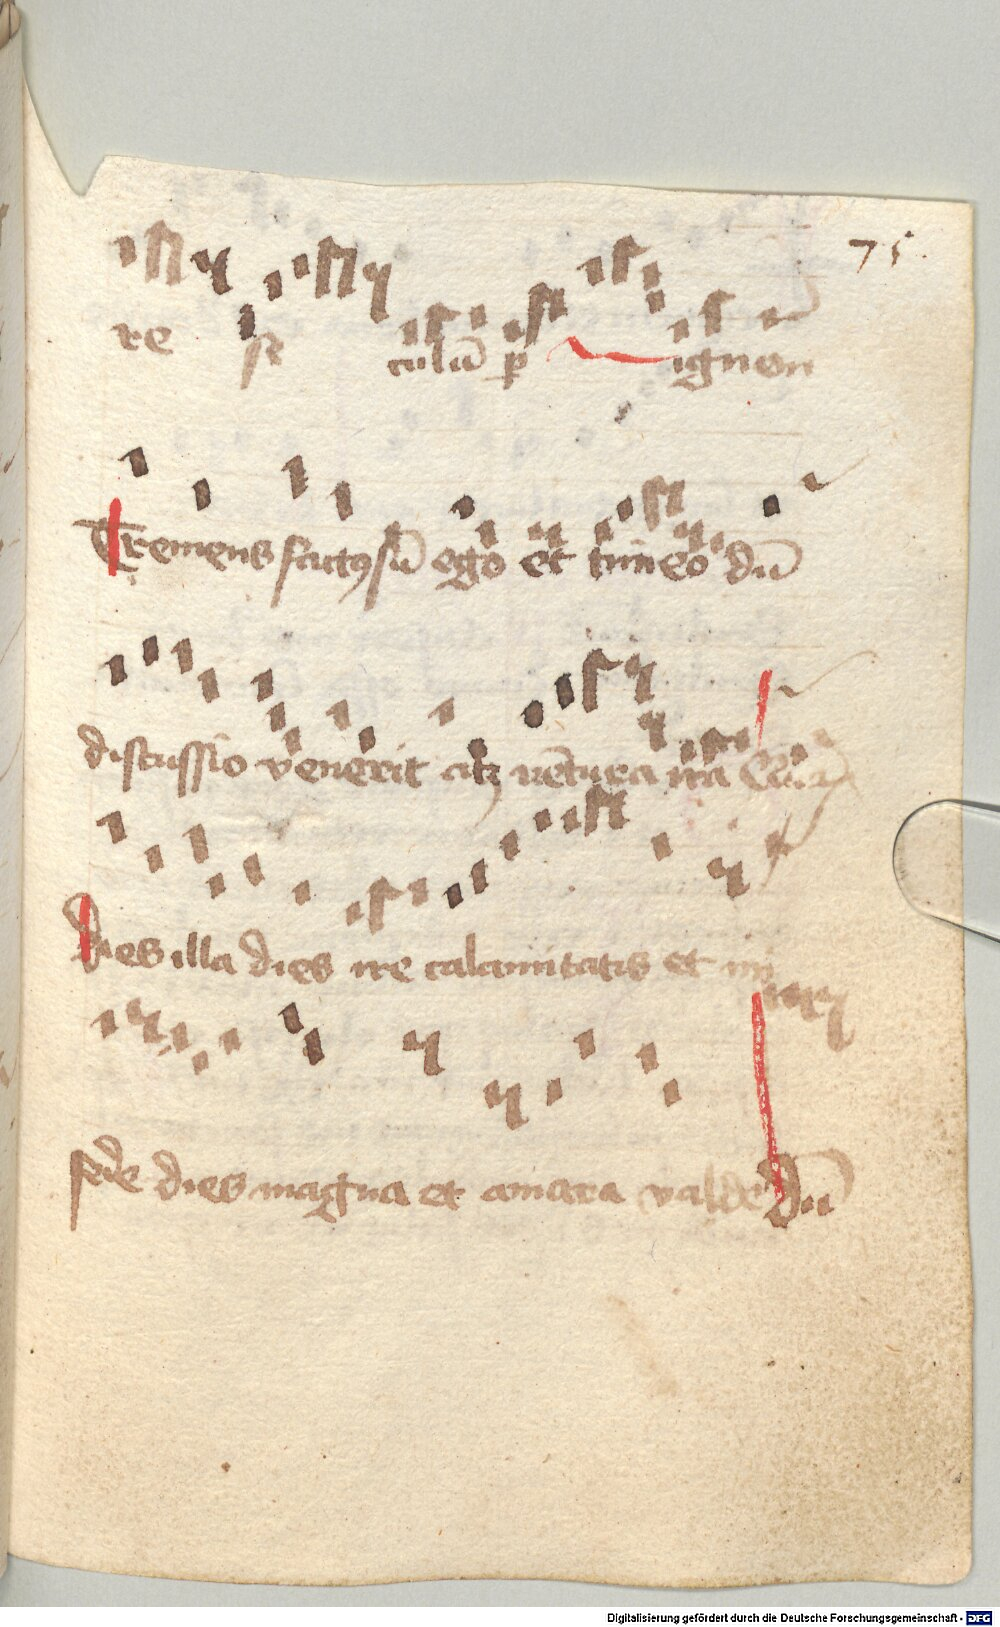 75.
re se culū p ignen
Tremens factꝰ sū ego et timeo dū
discussio venerit atqꝫ vētura ira
dies illa dies ire calamitatis et mi
serie dies magna et amara valde Dū
Digitalisierung gefördert durch die Deutsche Forschungsgemeinschaft - DFG